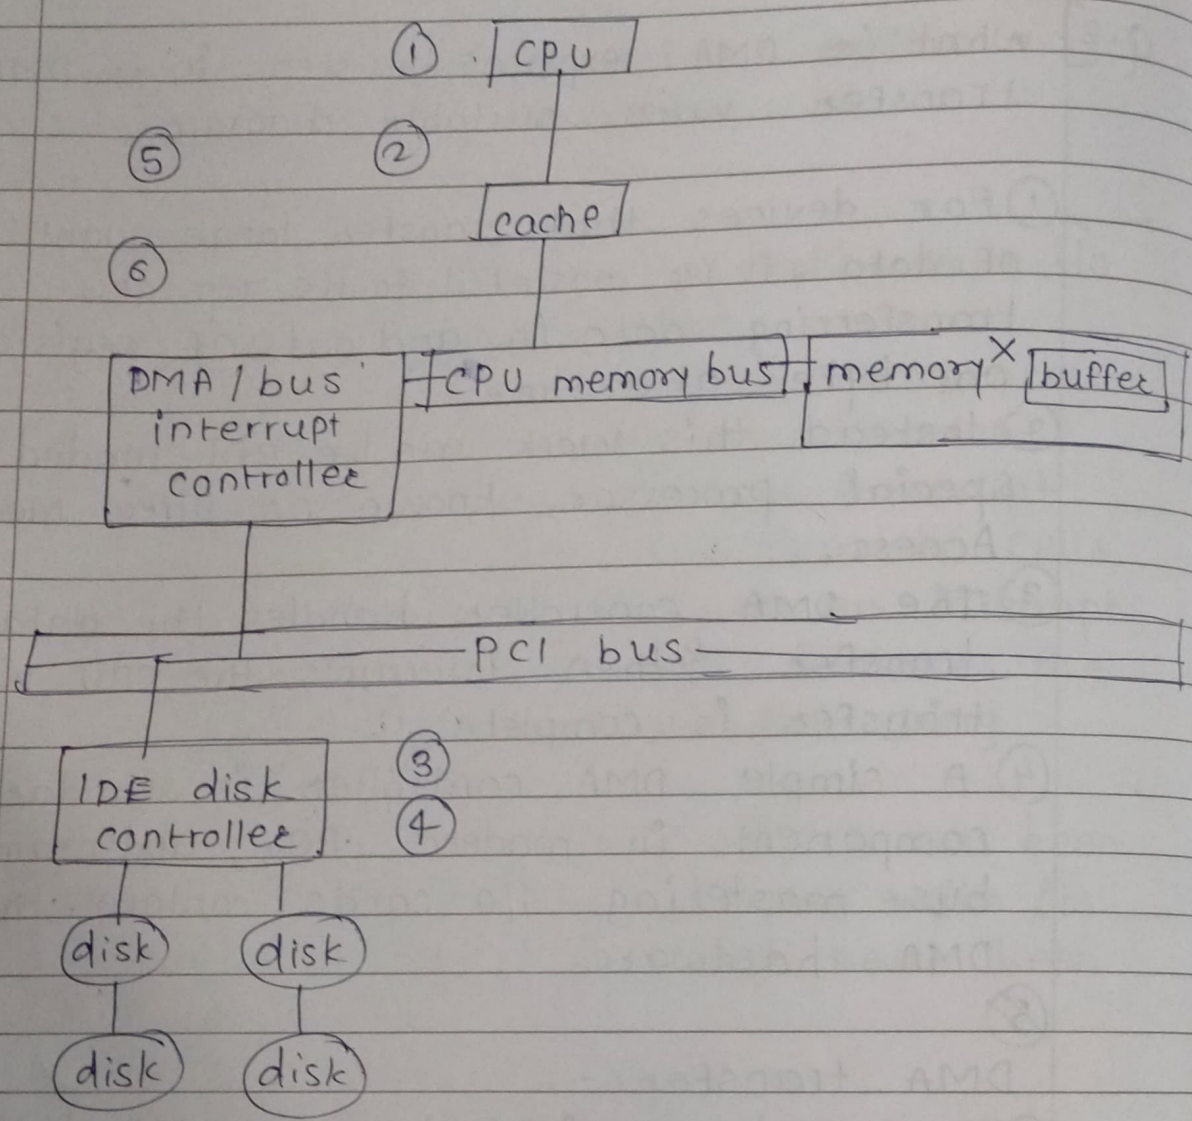 ① CPU
⑤ ②
cache
⑥
DMA / bus
interrupt
controller
CPU memory bus
memory x buffer
PCI bus
IDE disk
controller
③
④
disk disk
disk disk